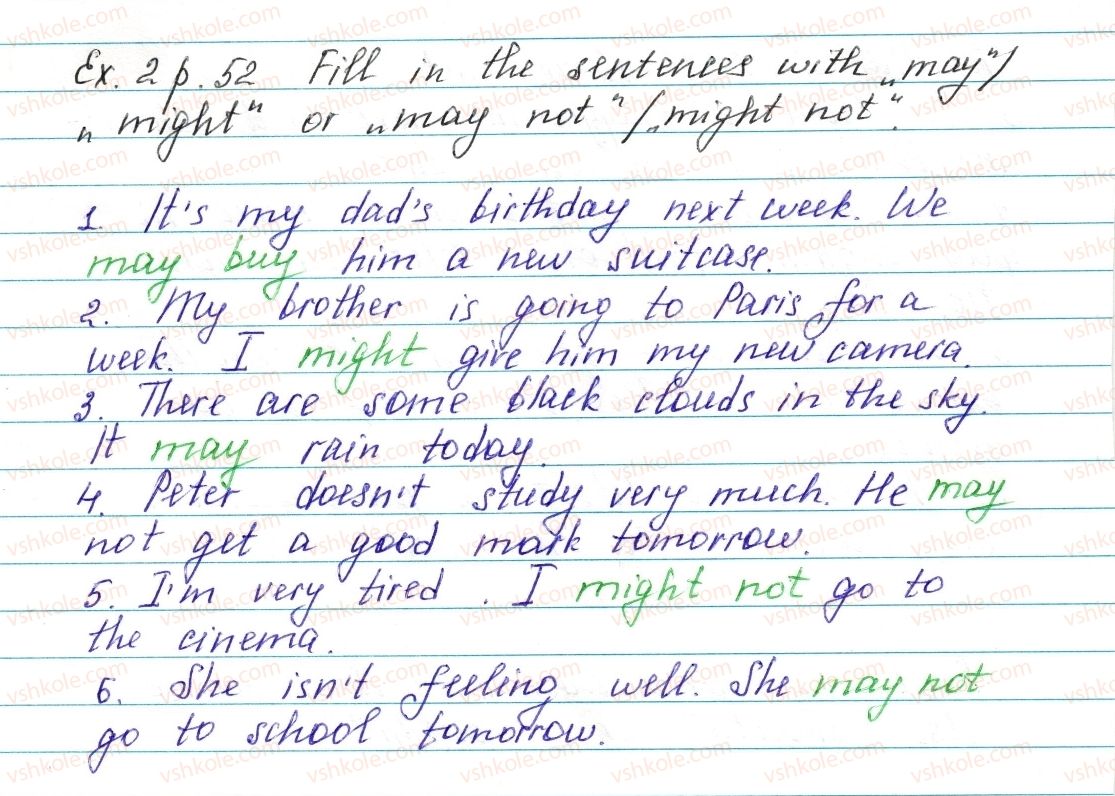 Ex. 2 p. 52 Fill in the sentences with „may"/
„might" or „may not"/„might not".
1. It's my dad's birthday next week. We
may buy him a new suitcase.
2. My brother is going to Paris for a
week. I might give him my new camera.
3. There are some black clouds in the sky.
It may rain today.
4. Peter doesn't study very much. He may
not get a good mark tomorrow.
5. I'm very tired. I might not go to
the cinema.
6. She isn't feeling well. She may not
go to school tomorrow.